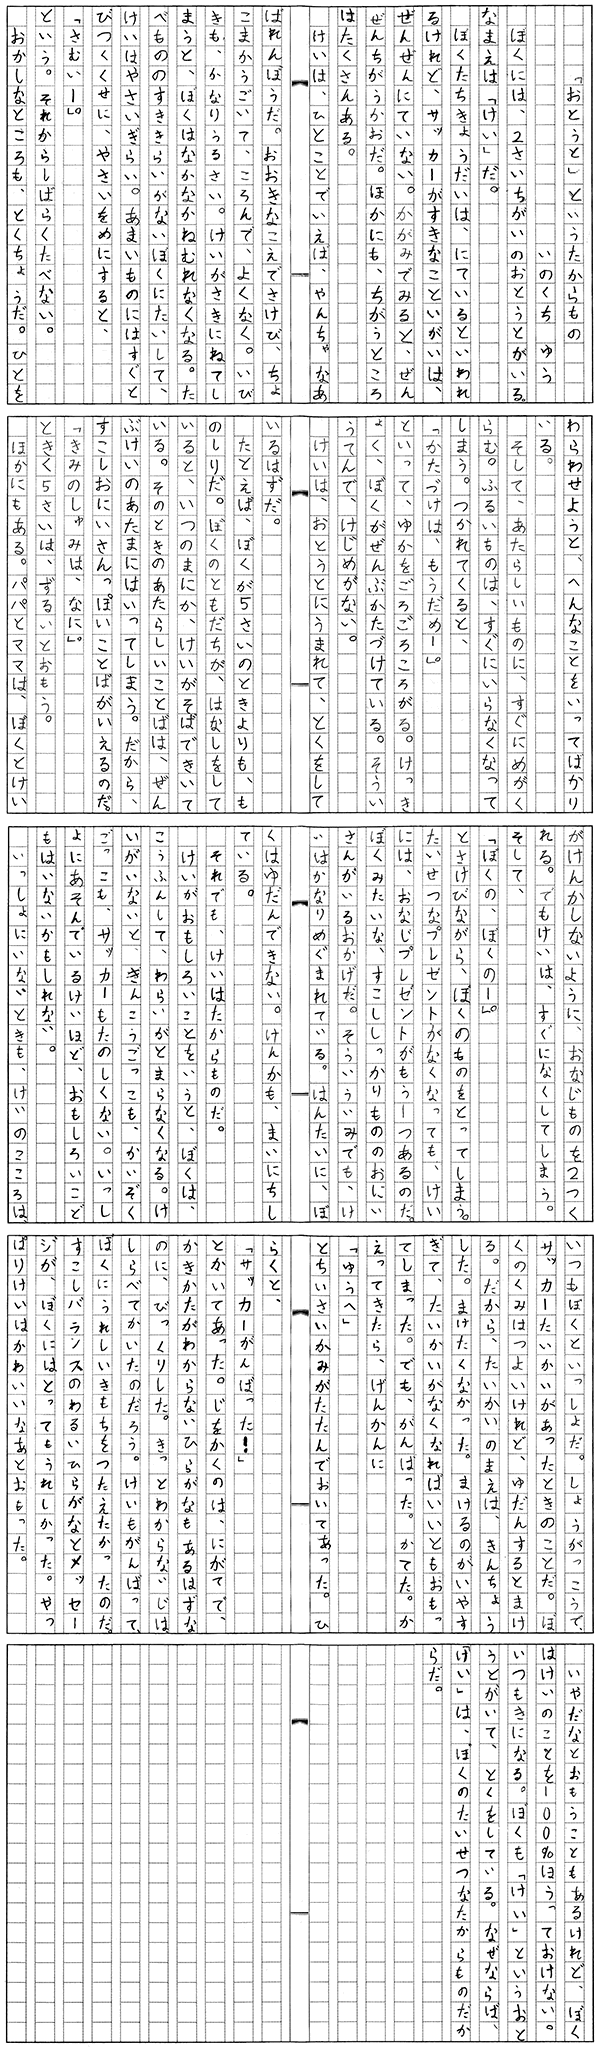 「おとうと」というたからもの
いのくち　ゆう
ぼくには、2さいちがいのおとうとがいる。
なまえは「けい」だ。
ぼくたちきょうだいは、にているといわれ
るけれど、サッカーがすきなこといがいは、
ぜんぜんにていない。かがみでみると、ぜん
ぜんちがうかおだ。ほかにも、ちがうところ
はたくさんある。
けいは、ひとことでいえば、やんちゃなあ
ばれんぼうだ。おおきなこえでさけび、ちょ
こまかうごいて、ころんで、よくなく。いび
きも、かなりうるさい。けいがさきにねてし
まうと、ぼくはなかなかねむれなくなる。た
べもののすききらいがないぼくにたいして、
けいはやさいぎらい。あまいものにはすぐと
びつくくせに、やさいをめにすると、
「さむいー」。
という。それからしばらくたべない。
おかしなところも、とくちょうだ。ひとを
わらわせようと、へんなことをいってばかり
いる。
そして、あたらしいものに、すぐにめがく
らむ。ふるいものは、すぐにいらなくなって
しまう。つかれてくると、
「かたづけは、もうだめー」。
といって、ゆかをごろごろころがる。けっき
ょく、ぼくがぜんぶかたづけている。そうい
うてんで、けじめがない。
けいは、おとうとにうまれて、とくをして
いるはずだ。
たとえば、ぼくが5さいのときよりも、も
のしりだ。ぼくのともだちが、はなしをして
いると、いつのまにか、けいがそばできいて
いる。そのときのあたらしいことばは、ぜん
ぶけいのあたまにはいってしまう。だから、
すこしおにいさんっぽいことばがいえるのだ。
「きみのしゅみは、なに」。
ときく5さいは、ずるいとおもう。
ほかにもある。パパとママは、ぼくとけい
がけんかしないように、おなじものを2つく
れる。でもけいは、すぐになくしてしまう。
そして、
「ぼくの、ぼくのー」。
とさけびながら、ぼくのものをとってしまう。
たいせつなプレゼントがなくなっても、けい
には、おなじプレゼントがもう一つあるのだ。
ぼくみたいな、すこししっかりもののおにい
さんがいるおかげだ。そういういみでも、け
いはかなりめぐまれている。はんたいに、ぼ
くはゆだんできない。けんかも、まいにちし
ている。
それでも、けいはたからものだ。
けいがおもしろいことをいうと、ぼくは、
こうふんして、わらいがとまらなくなる。け
いがいないと、ぎんこうごっこも、かいぞく
ごっこも、サッカーもたのしくない。いっし
ょにあそんでいるけいほど、おもしろいこど
もはいないかもしれない。
いっしょにいないときも、けいのこころは、
いつもぼくといっしょだ。しょうがっこうで、
サッカーたいかいがあったときのことだ。ぼ
くのくみはつよいけれど、ゆだんするとまけ
る。だから、たいかいのまえは、きんちょう
した。まけたくなかった。まけるのがいやす
ぎて、たいかいがなくなればいいともおもっ
てしまった。でも、がんばった。かてた。か
えってきたら、げんかんに
「ゆうへ」
とちいさいかみがたたんでおいてあった。ひ
らくと、
「サッカーがんばった！」
とかいてあった。じをかくのは、にがてで、
かきかたがわからないひらがなもあるはずな
のに、びっくりした。きっとわからないじは
しらべてかいたのだろう。けいもがんばって、
ぼくにうれしいきもちをつたえたかったのだ。
すこしバランスのわるいひらがなとメッセー
ジが、ぼくにはとってもうれしかった。やっ
ぱりけいはかわいいなあとおもった。
いやだなとおもうこともあるけれど、ぼく
はけいのことを100％ほうっておけない。
いつもきになる。ぼくも「けい」というおと
うとがいて、とくをしている。なぜならば、
「けい」は、ぼくのたいせつなたからものだか
らだ。